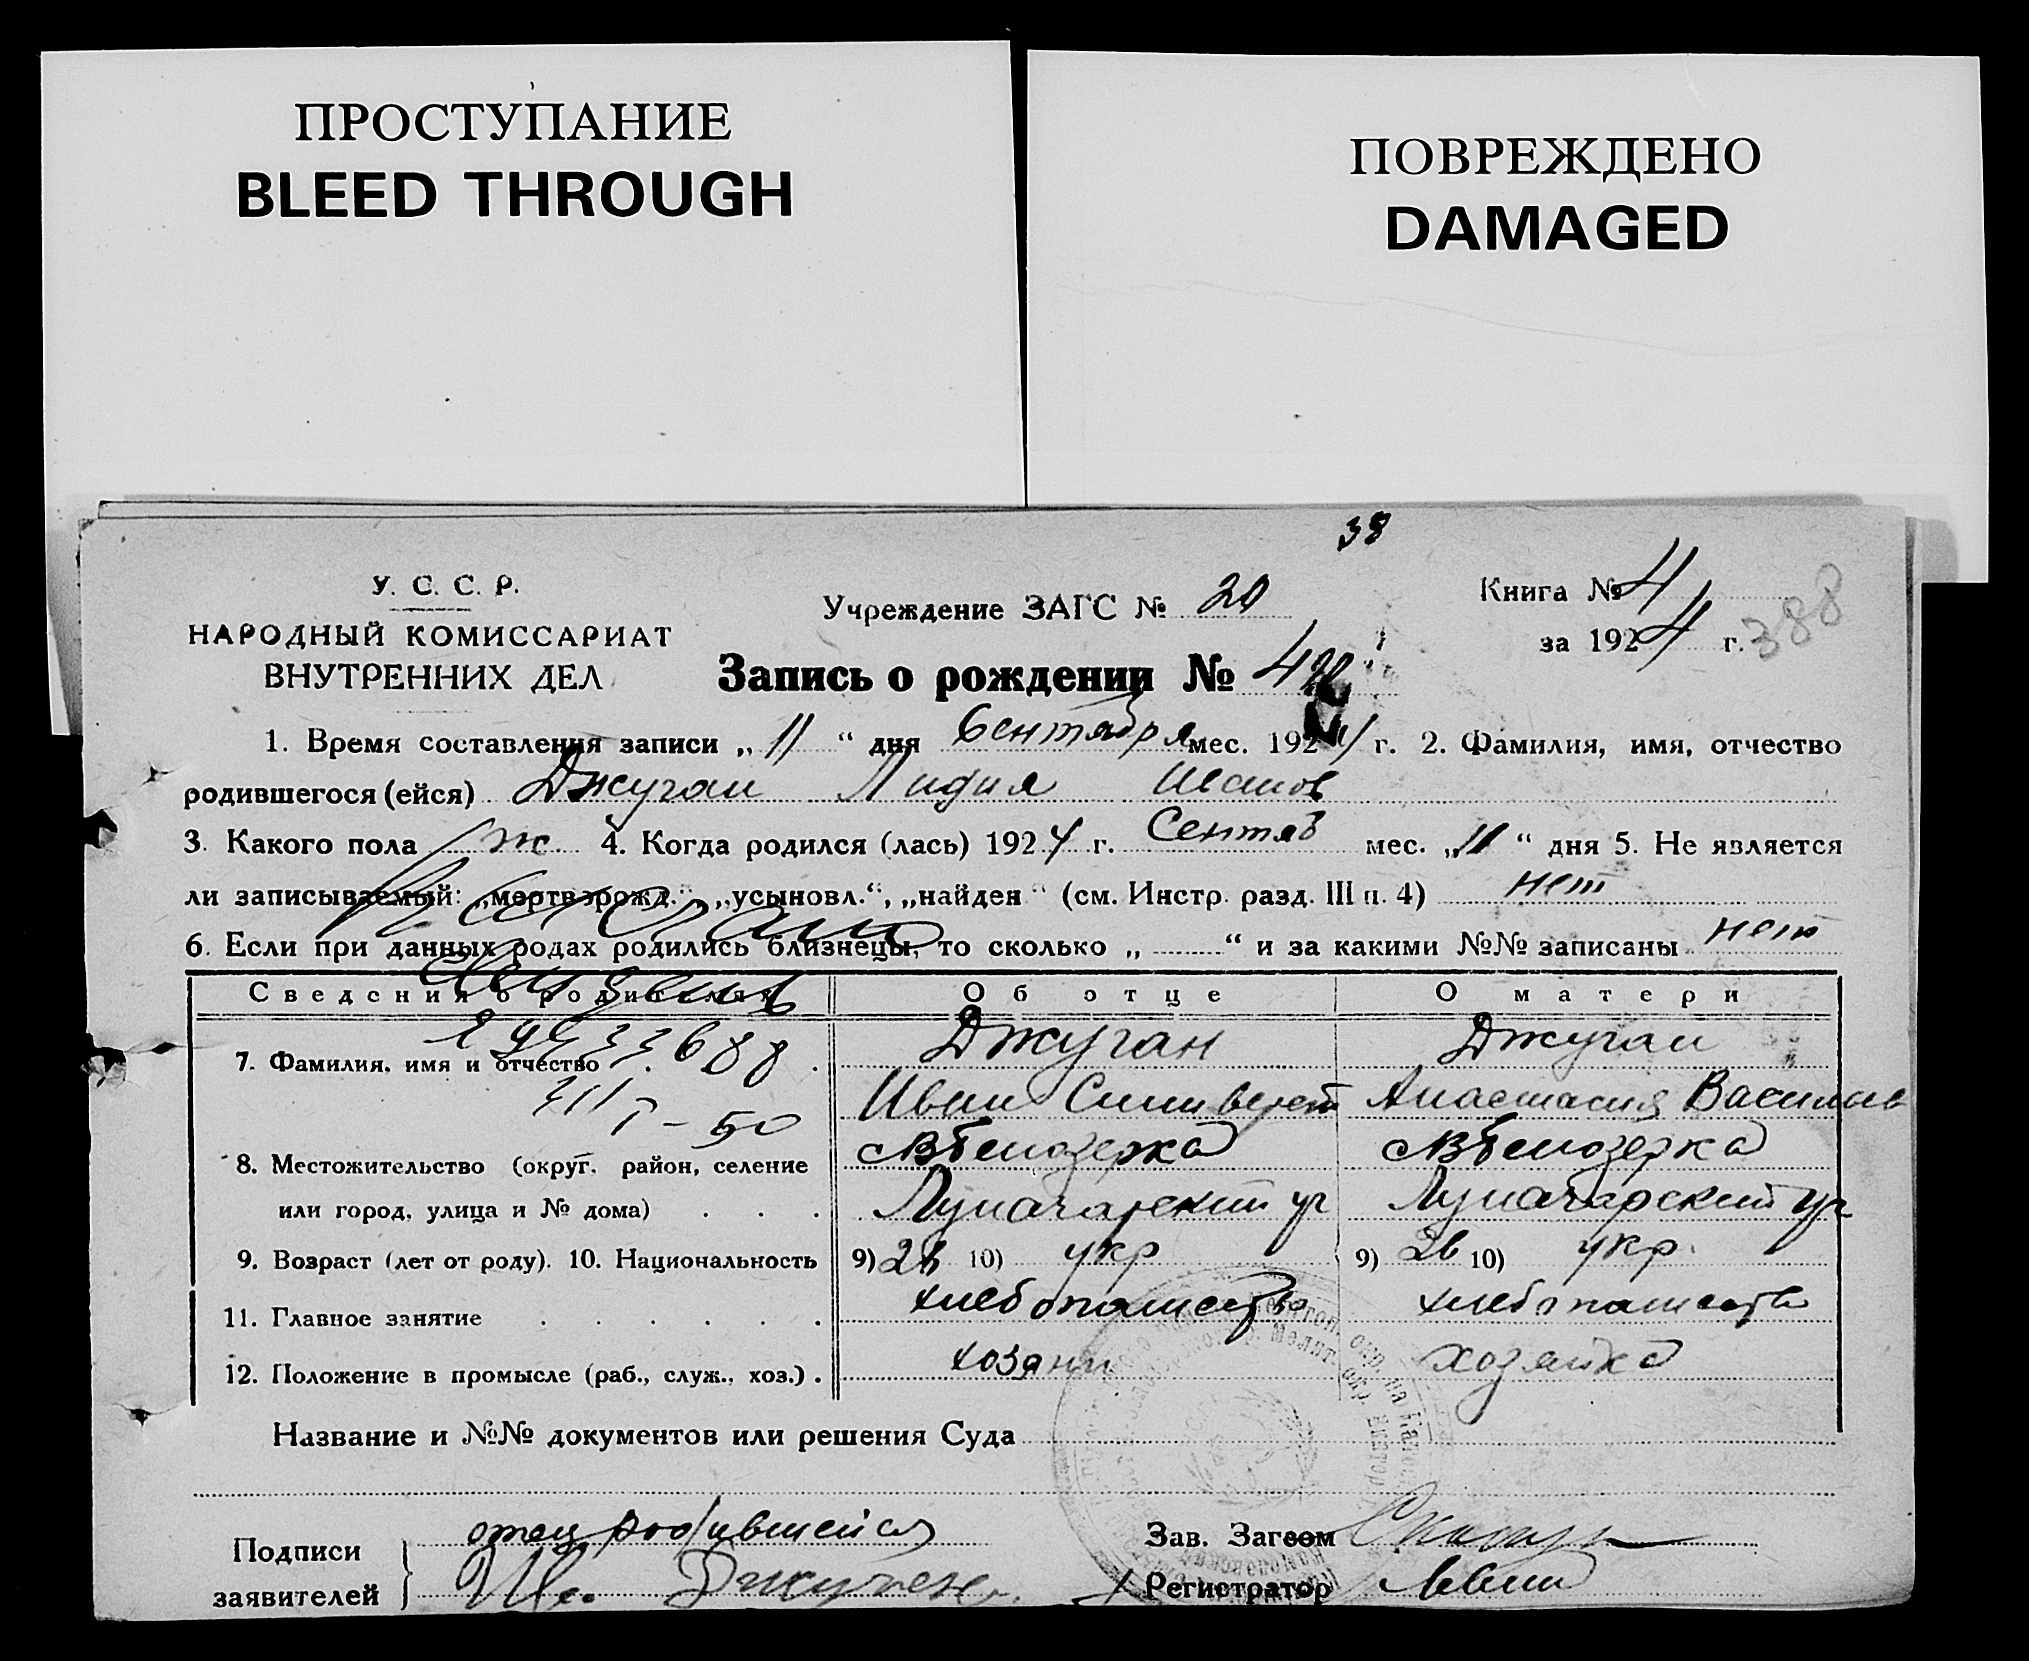 ПРОСТУПАНИЕ
BLEED THROUGH
ПОВРЕЖДЕНО
DAMAGED
38
У. С. С. Р.
НАРОДНЫЙ КОМИССАРИАТ
ВНУТРЕННИХ ДЕЛ
Учреждение ЗАГС № 20
Книга № 4
за 1924 г. 388
Запись о рождении №
1. Время составления записи „11“ дня Сентября мес. 1924 г. 2. Фамилия, имя, отчество
родившегося (ейся) Джуган Лидия Иванов
3. Какого пола ж 4. Когда родился (лась) 1924 г. Сентяб мес. „11“ дня 5. Не является
ли записываемый: „мертворожд.“, „усыновл.“, „найден“ (см. Инстр. разд. III п. 4) нет
6. Если при данных родах родились близнецы, то сколько „ “ и за какими №№ записаны нет
Сведения о родителях Об отце О матери
7. Фамилия, имя и отчество Джуган Джуган
Иван Анастасия Васильев
50
8. Местожительство (округ, район, селение Белозерка Белозерка
или город, улица и № дома) Луначарский Луначарский
9. Возраст (лет от роду). 10. Национальность 9) 26 10) укр 9) 26 10) укр.
11. Главное занятие хлебопашество хлебопашество
12. Положение в промысле (раб., служ., хоз.) хозяин хозяйка
Название и №№ документов или решения Суда
Подписи заявителей отец родившейся
Ив. Джуган.
Зав. Загсом
Регистратор